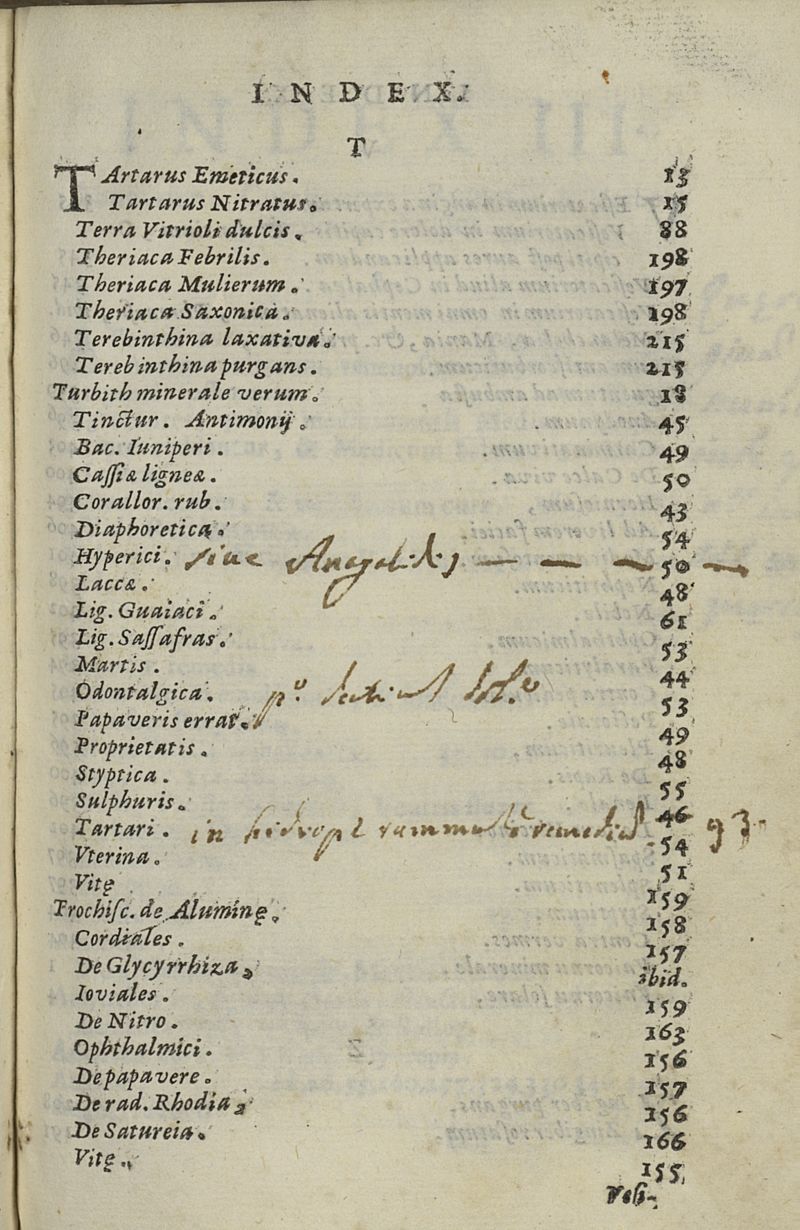 INDEX.
T
TArtarus Emeticus. 13
Tartarus Nitratus. 15
Terra Vitrioli dulcis. 88
Theriaca Febrilis. 198
Theriaca Mulierum. 197
Theriaca Saxonica. 198
Terebinthina laxativa. 215
Terebinthina purgans. 215
Turbith minerale verum. 18
Tinctur. Antimonij. 45
Bac. Iuniperi. 49
Caſſiæ ligneæ. 50
Corallor. rub. 43
Diaphoretica. 54
Hyperici. siue 50
Laccæ. 48
Lig. Guaiaci. 61
Lig. Saſſafras. 53
Martis. 44
Odontalgica. 53
Papaveris errat. 49
Proprietatis. 48
Styptica. 55
Sulphuris. 46
Tartari. in 54 93.
Vterina. 51
Vitę 159
Trochiſc. de Aluminę. 158
Cordiales. 157
De Glycyrrhiza. ibid.
Ioviales. 159
De Nitro. 163
Ophthalmici. 156
De papavere. 157
De rad. Rhodia. 156
De Satureia. 166
Vitę. 155
Veſi-